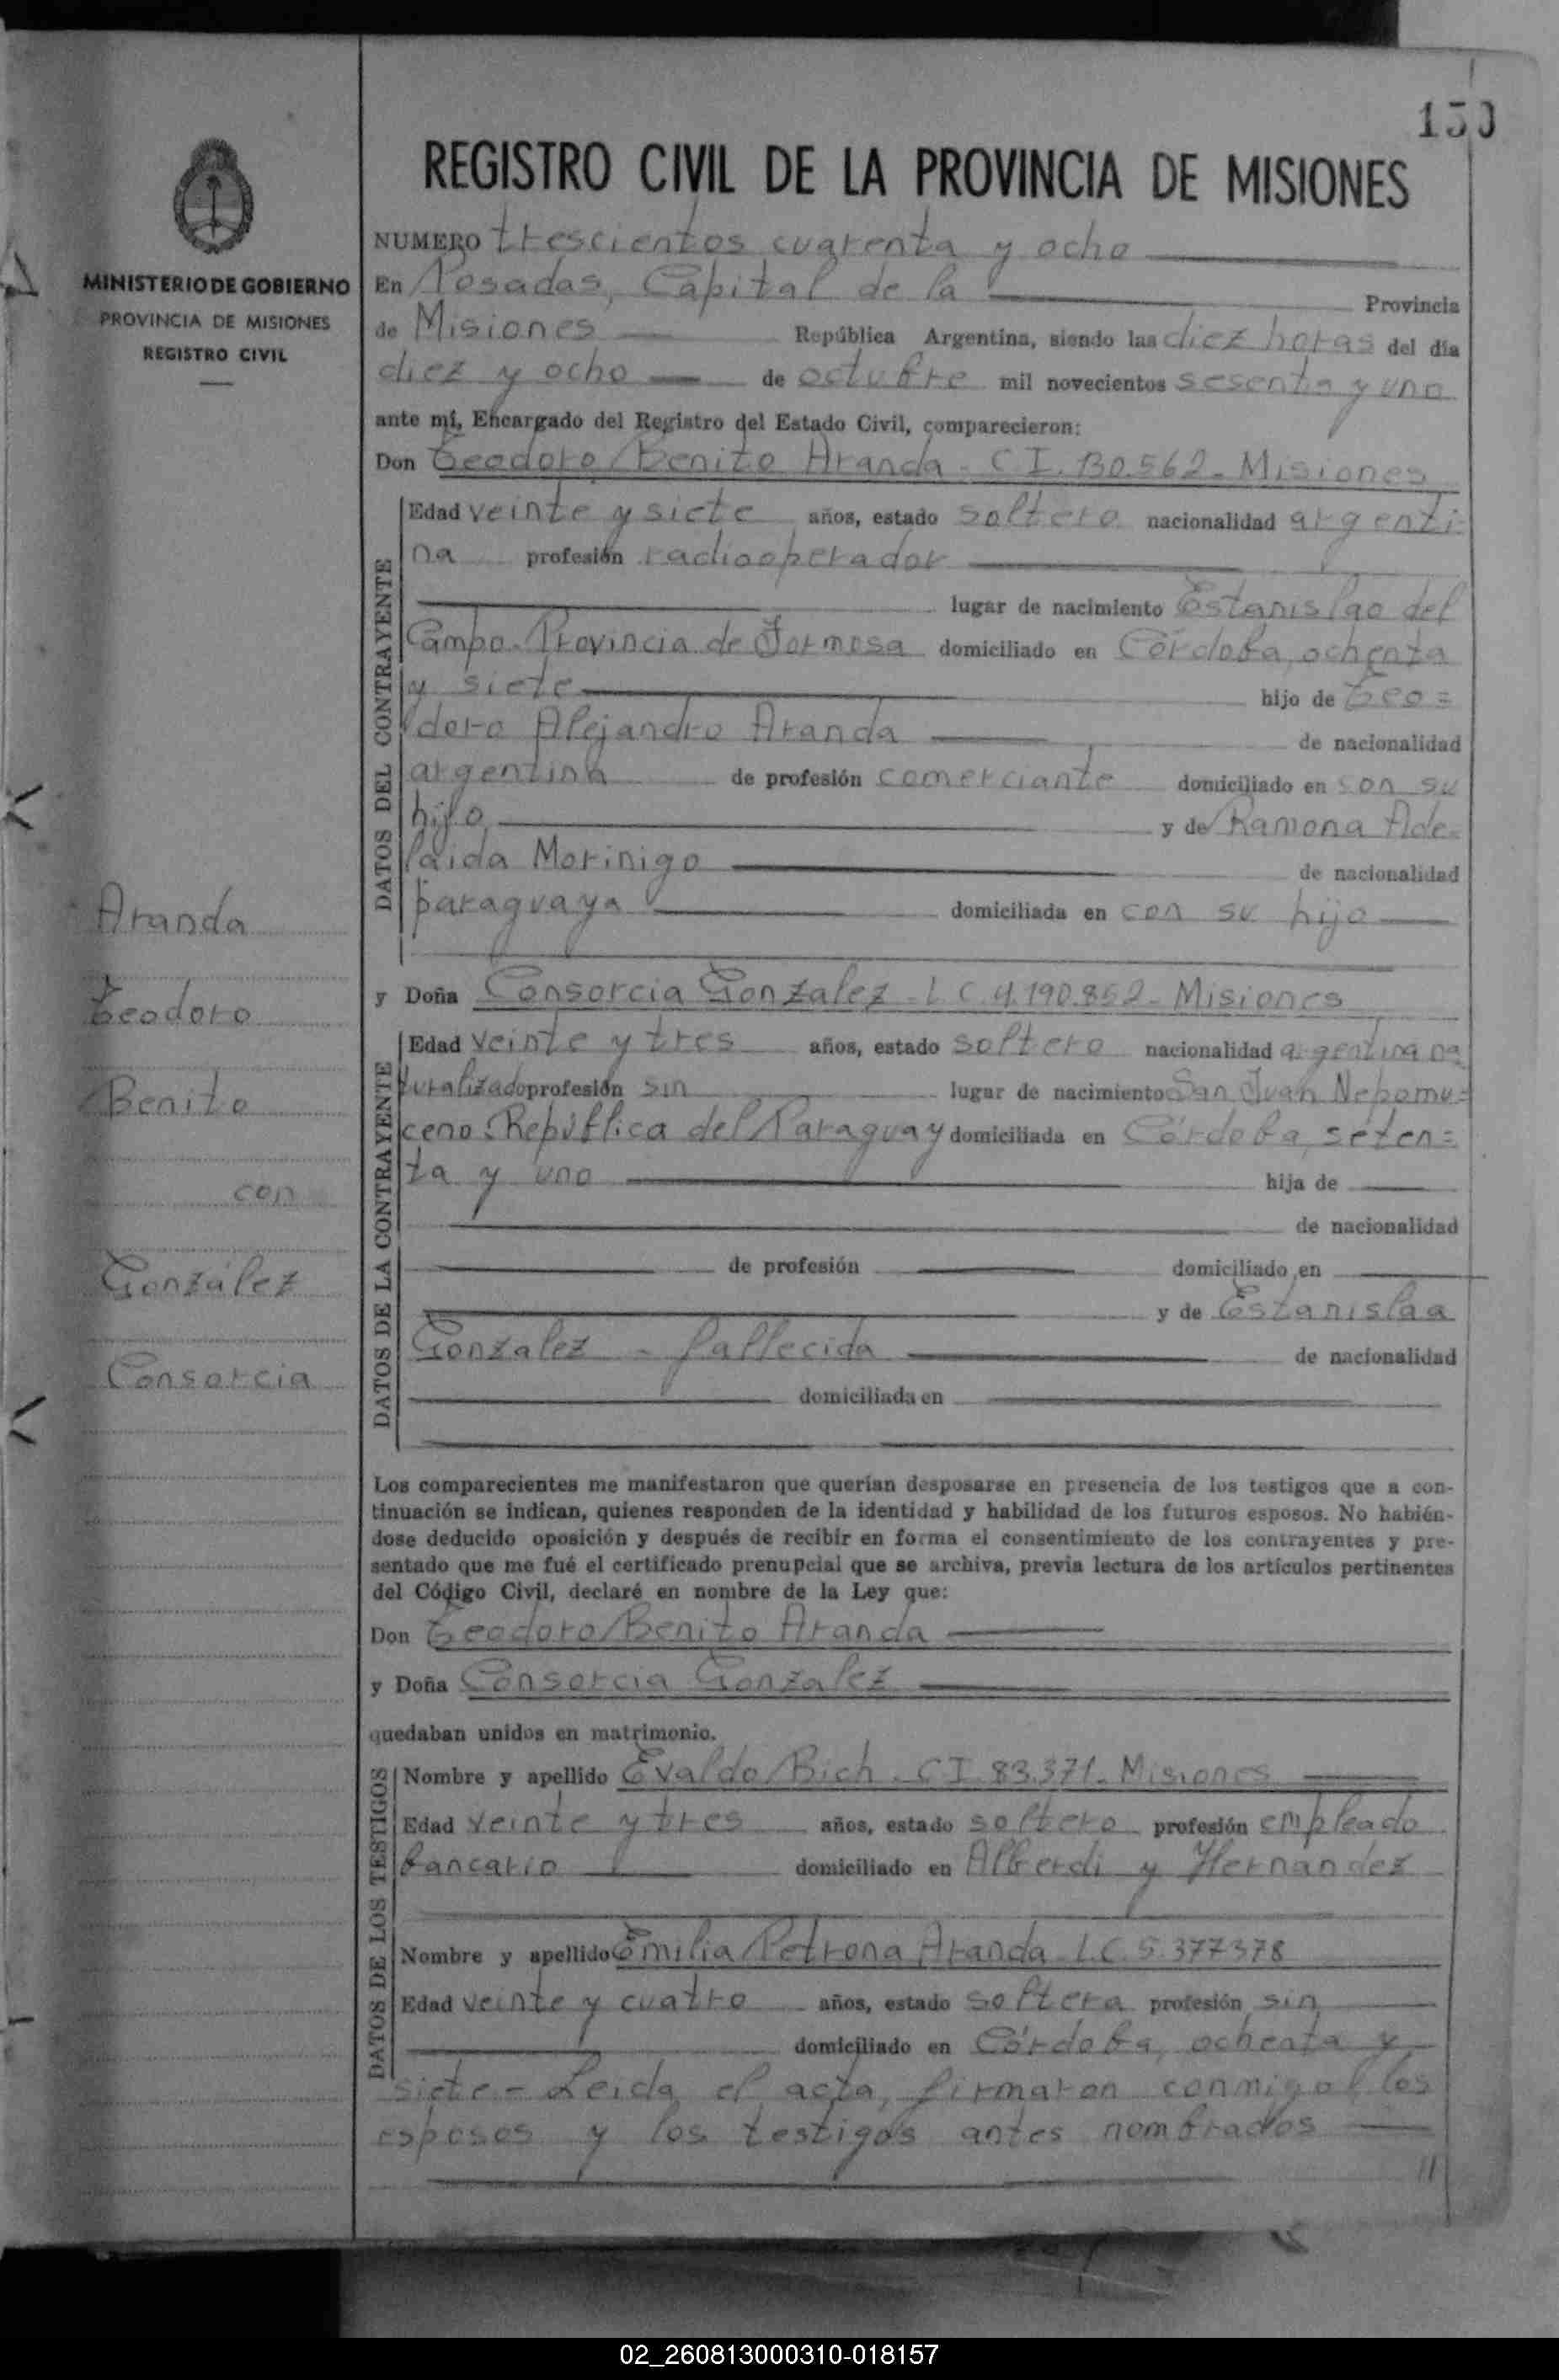 150
REGISTRO CIVIL DE LA PROVINCIA DE MISIONES
MINISTERIO DE GOBIERNO
PROVINCIA DE MISIONES
REGISTRO CIVIL
Aranda
Teodoro
Benito
con
González
Consorcia
NUMERO trescientos cuarenta y ocho
En Posadas, Capital de la Provincia
de Misiones República Argentina, siendo las diez horas del día
diez y ocho de octubre mil novecientos sesenta y uno
ante mí, Encargado del Registro del Estado Civil, comparecieron:
Don Teodoro Benito Aranda - C I. 130.562 - Misiones
DATOS DEL CONTRAYENTE
Edad veinte y siete años, estado soltero nacionalidad argenti-
na profesión radiooperador
lugar de nacimiento Estanislao del
Campo - Provincia de Formosa domiciliado en Córdoba, ochenta
y siete hijo de Teo=
doro Alejandro Aranda de nacionalidad
argentina de profesión comerciante domiciliado en con su
hijo y de Ramona Ade-
laida Morinigo de nacionalidad
paraguaya domiciliada en con su hijo
y Doña Consorcia Gonzalez - L C 4.190.852 - Misiones
DATOS DE LA CONTRAYENTE
Edad veinte y tres años, estado soltero nacionalidad argentina na
turalizado profesión sin lugar de nacimiento San Juan Nepomu=
ceno - República del Paraguay domiciliada en Córdoba, seten=
ta y uno hija de
de nacionalidad
de profesión domiciliado en
y de Estanislaa
Gonzalez - fallecida de nacionalidad
domiciliada en
Los comparecientes me manifestaron que querían desposarse en presencia de los testigos que a con-
tinuación se indican, quienes responden de la identidad y habilidad de los futuros esposos. No habién-
dose deducido oposición y después de recibir en forma el consentimiento de los contrayentes y pre-
sentado que me fué el certificado prenupcial que se archiva, previa lectura de los artículos pertinentes
del Código Civil, declaré en nombre de la Ley que:
Don Teodoro Benito Aranda
y Doña Consorcia Gonzalez
quedaban unidos en matrimonio.
DATOS DE LOS TESTIGOS
Nombre y apellido Evaldo Bich - C I 83.371 - Misiones
Edad veinte y tres años, estado soltero profesión empleado
bancario domiciliado en Alberdi y Hernandez
Nombre y apellido Emilia Petrona Aranda - L.C. 5.377378
Edad veinte y cuatro años, estado soltera profesión sin
domiciliado en Córdoba, ochenta y
siete - Leida el acta, firmaron conmigo los
esposos y los testigos antes nombrados
//
02_260813000310-018157